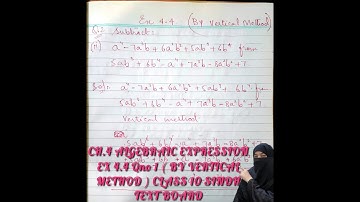 Ex 4.4 (By Vertical Method)
Q:1 Subtract:
(ii) a⁴ - 7a³b + 6a²b² + 5ab³ + 6b⁴ from
5ab³ + 6b⁴ - a⁴ + 7a³b - 8a²b² + 7
Sol: a⁴ - 7a³b + 6a²b² + 5ab³ + 6b⁴ from
5ab³ + 6b⁴ - a⁴ + 7a³b - 8a²b² + 7
Vertical method
CH.4 ALGEBRAIC EXPRESSION
EX 4.4 Qno 1 ( BY VERTICAL
METHOD ) CLASS 10 SINDH
TEXT BOARD